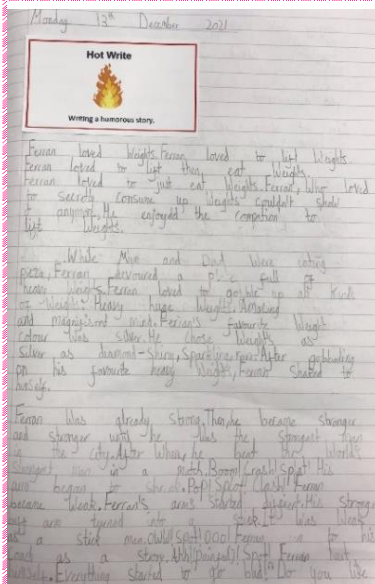 Monday 13th December 2021
Hot Write
Writing a humorous story.
Ferran loved Weights. Ferran loved to lift Weights.
Ferran loved to lift then eat Weights.
Ferran loved to just eat Weights. Ferran, Who loved
to secretly consume up Weights couldn't show
it anymore. He enjoyed the to
lift Weights.
While Mum and Dad Were eating
pizza, Ferran devoured a full of
heavy weights. Ferran loved to gobble up all kinds
of Weights. Heavy huge Weights. Amazing
and magnificent Ferran's favourite Weight
colour was silver. He chose Weights as
silver as diamond - shiny, sparkling, After gobbling
on his favourite heavy Weight, Ferran to
himself.
Ferran Was already strong. Then, he became stronger
and stronger until he was the strongest
in the city. After When, he beat the Worlds
strongest man in a match. Boom! Crash! Splat! His
arm began to Pop! Splat! Clash! Ferran
became Weak. Ferran's arms started His strong
arm turned into a stick. It was Weak
as a stick man. OWW! Splat! Ferran to his
as a Ahh! Splat! Ferran
himself. Everything started to go bad. Do you like